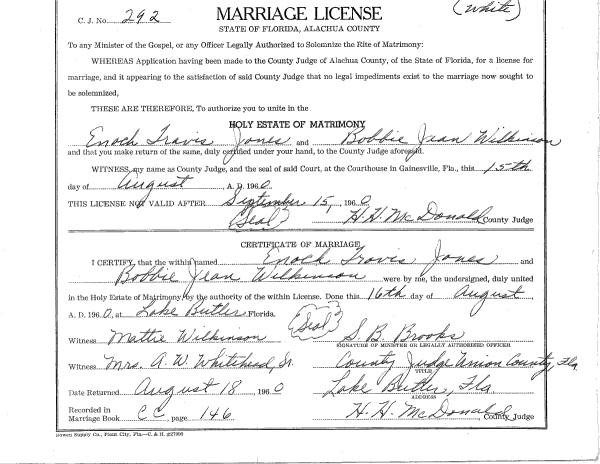 (White)
C. J. No. 292
MARRIAGE LICENSE
STATE OF FLORIDA, ALACHUA COUNTY
To any Minister of the Gospel, or any Officer Legally Authorized to Solemnize the Rite of Matrimony:
WHEREAS Application having been made to the County Judge of Alachua County, of the State of Florida, for a license for
marriage, and it appearing to the satisfaction of said County Judge that no legal impediments exist to the marriage now sought to
be solemnized,
THESE ARE THEREFORE, To authorize you to unite in the
HOLY ESTATE OF MATRIMONY
Enoch Travis Jones and Bobbie Jean Wilkinson
and that you make return of the same, duly certified under your hand, to the County Judge aforesaid.
WITNESS, my name as County Judge, and the seal of said Court, at the Courthouse in Gainesville, Fla., this 15th
day of August, A. D. 1960.
THIS LICENSE NOT VALID AFTER September 15, 1960
(Seal) H. H. McDonald, County Judge
CERTIFICATE OF MARRIAGE
I CERTIFY, that the within named Enoch Travis Jones and
Bobbie Jean Wilkinson were by me, the undersigned, duly united
in the Holy Estate of Matrimony by the authority of the within License. Done this 16th day of August,
A. D. 1960, at Lake Butler, Florida.
(Seal)
Witness Mattie Wilkinson S. B. Brooks
SIGNATURE OF MINISTER OR LEGALLY AUTHORIZED OFFICER
Witness Mrs. A. W. Whitehead, Sr. County Judge Union County, Fla
TITLE
Date Returned August 18 1960 Lake Butler, Fla.
ADDRESS
Recorded in
Marriage Book CC, page 146 H. H. McDonald, County Judge
Bowen Supply Co., Plant City, Fla.—C. & H. #27998